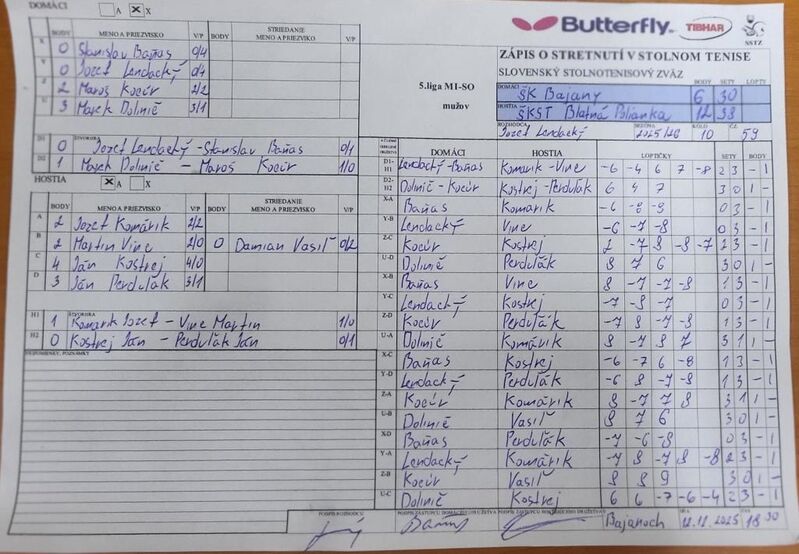 DOMÁCI A X
BODY MENO A PRIEZVISKO V/P BODY STRIEDANIE MENO A PRIEZVISKO V/P
X 0 Stanislav Baňas 0/4
Y 0 Jozef Lendacký 0/4
Z 2 Maroš Kocúr 2/2
U 3 Marek Dolinič 3/1
D1 ŠTVORHRA 0 Jozef Lendacký - Stanislav Baňas 0/1
D2 1 Marek Dolinič - Maroš Kocúr 1/0
HOSTIA A X
BODY MENO A PRIEZVISKO V/P BODY STRIEDANIE MENO A PRIEZVISKO V/P
A 2 Jozef Komárik 2/2
B 2 Martin Vinc 2/0 0 Damian Vasiľ 0/2
C 4 Ján Kostrej 4/0
D 3 Ján Perduľák 3/1
H1 ŠTVORHRA 1 Komárik Jozef - Vinc Martin 1/0
H2 0 Kostrej Ján - Perduľák Ján 0/1
PRIPOMIENKY, POZNÁMKY
Butterfly TIBHAR NSTZ
ZÁPIS O STRETNUTÍ V STOLNOM TENISE
SLOVENSKÝ STOLNOTENISOVÝ ZVÄZ
BODY SETY LOPTY
5.liga MI-SO mužov
DOMÁCI ŠK Bajany 6 30
HOSTIA ŠKST Blatná Polianka 12 38
ROZHODCA Jozef Lendacký SEZÓNA 2025/26 KOLO 10 Č.Z. 59
DOMÁCI HOSTIA LOPTIČKY SETY BODY
D1-H1 Lendacký-Baňas Komárik-Vinc -6 -4 6 7 -8 2 3 - 1
D2-H2 Dolinič-Kocúr Kostrej-Perduľák 6 4 7 3 0 1 -
X-A Baňas Komárik -6 -8 -9 0 3 - 1
Y-B Lendacký Vinc -6 -7 -8 0 3 - 1
Z-C Kocúr Kostrej 7 -7 8 -8 -7 2 3 - 1
U-D Dolinič Perduľák 8 7 6 3 0 1 -
X-B Baňas Vinc 8 -7 -7 -8 1 3 - 1
Y-C Lendacký Kostrej -7 -8 -7 0 3 - 1
Z-D Kocúr Perduľák -7 8 -7 -8 1 3 - 1
U-A Dolinič Komárik 8 -7 8 7 3 1 1 -
X-C Baňas Kostrej -6 -7 6 -8 1 3 - 1
Y-D Lendacký Perduľák -6 8 -7 -8 1 3 - 1
Z-A Kocúr Komárik 8 -7 7 8 3 1 1 -
U-B Dolinič Vasiľ 8 7 6 3 0 1 -
X-D Baňas Perduľák -7 -6 -8 0 3 - 1
Y-A Lendacký Komárik -7 8 -7 8 -8 2 3 - 1
Z-B Kocúr Vasiľ 8 8 9 3 0 1 -
U-C Dolinič Kostrej 6 6 -7 -6 -4 2 3 - 1
PODPIS ROZHODCU PODPIS ZÁSTUPCU DOMÁCEHO DRUŽSTVA PODPIS ZÁSTUPCU HOSŤUJÚCEHO DRUŽSTVA
Bajanoch DŇA 12.12.2025 ČAS 18 30